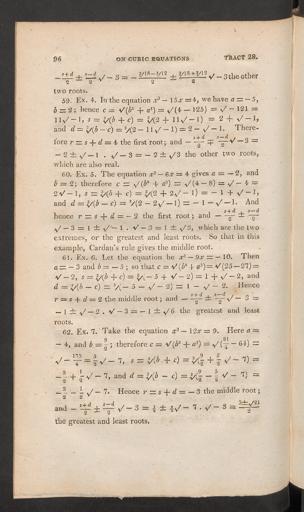 96 ON CUBIC EQUATIONS TRACT 28.
two roots.
59. Ex. 4. In the equation x³ − 15x = 4, we have a = − 5,
b = 2; hence c = √(b² + a³) = √(4 − 125) = √ − 121 =
11√ − 1, s = ∛(b + c) = ∛(2 + 11√ − 1) = 2 + √ − 1,
and d = ∛(b − c) = ∛(2 − 11√ − 1) = 2 − √ − 1. There-
fore r = s + d = 4 the first root; and − (s+d)/2 ± (s−d)/2 √ − 3 =
− 2 ± √ − 1 . √ − 3 = − 2 ± √3 the other two roots,
which are also real.
60. Ex. 5. The equation x³ − 6x = 4 gives a = − 2, and
b = 2; therefore c = √(b² + a³) = √(4 − 8) = √ − 4 =
2√ − 1, s = ∛(b + c) = ∛(2 + 2√ − 1) = − 1 + √ − 1,
and d = ∛(b − c) = ∛(2 − 2√ − 1) = − 1 − √ − 1. And
hence r = s + d = − 2 the first root; and − (s+d)/2 ± (s−d)/2
√ − 3 = 1 ± √ − 1 . √ − 3 = 1 ± √3, which are the two
extremes, or the greatest and least roots. So that in this
example, Cardan's rule gives the middle root.
61. Ex. 6. Let the equation be x³ − 9x = − 10. Then
a = − 3 and b = − 5; so that c = √(b² + a³) = √(25 − 27) =
√ − 2, s = ∛(b + c) = ∛( − 5 + √ − 2) = 1 + √ − 2, and
d = ∛(b − c) = ∛( − 5 − √ − 2) = 1 − √ − 2. Hence
r = s + d = 2 the middle root; and − (s+d)/2 ± (s−d)/2 √ − 3 =
− 1 ± √ − 2 . √ − 3 = − 1 ± √6 the greatest and least
roots.
62. Ex. 7. Take the equation x³ − 12x = 9. Here a =
− 4, and b = 9/2; therefore c = √(b² + a³) = √(81/4 − 64) =
√ − 175/4 = 5/2 √ − 7, s = ∛(b + c) = ∛(9/2 + 5/2 √ − 7) =
− 3/2 + 1/2 √ − 7, and d = ∛(b − c) = ∛(9/2 − 5/2 √ − 7) =
− 3/2 − 1/2 √ − 7. Hence r = s + d = − 3 the middle root;
the greatest and least roots.